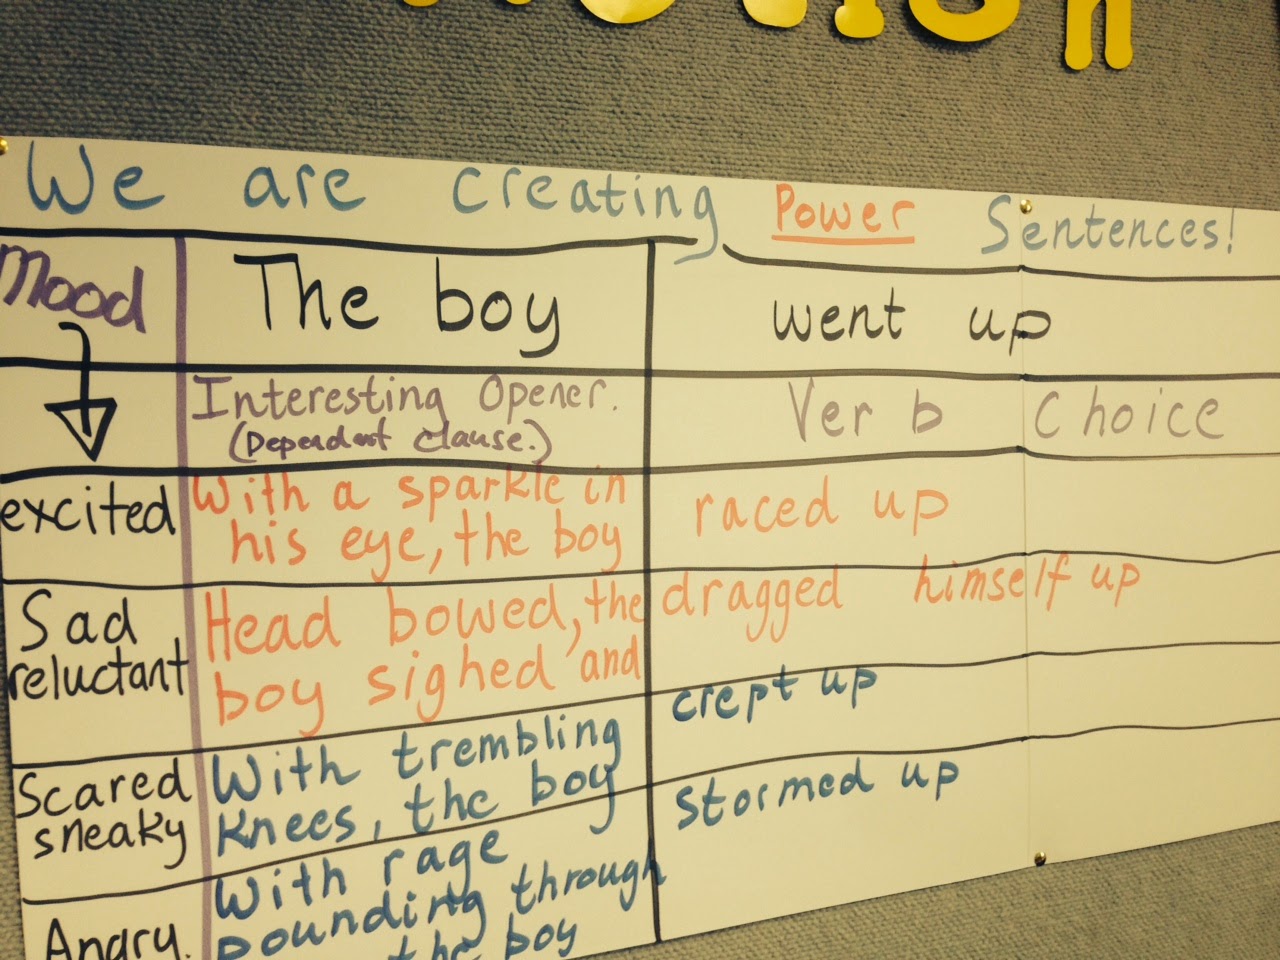 We are creating Power Sentences!
Mood The boy went up
Interesting Opener. Verb Choice
(Dependent clause.)
excited With a sparkle in raced up
his eye, the boy
Sad Head bowed, the dragged himself up
reluctant boy sighed and
Scared With trembling crept up
sneaky knees, the boy
Angry. With rage stormed up
pounding through
the boy